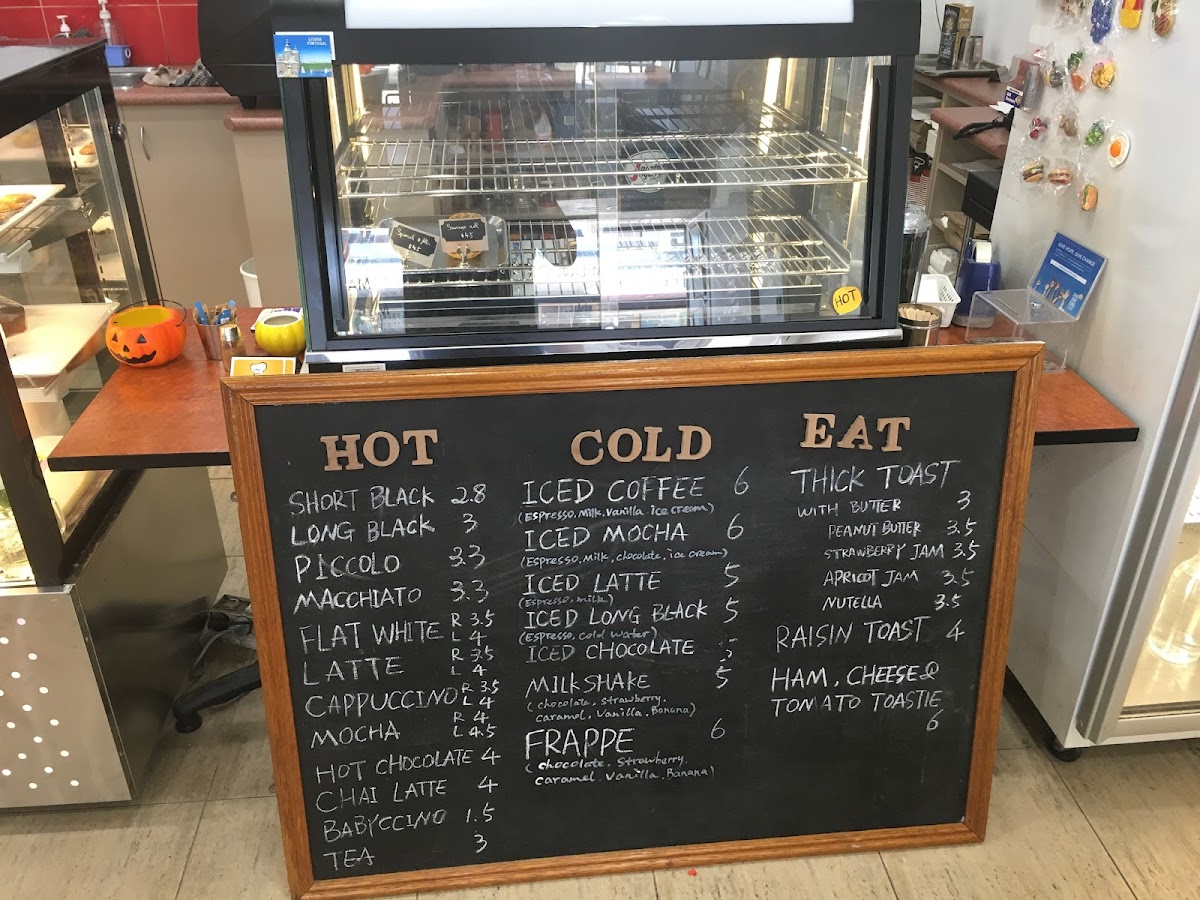 LISBOA
PORTUGAL
HOT
GIVE HOPE. GIVE CHANGE
HOT
SHORT BLACK 2.8
LONG BLACK 3
PICCOLO 3.3
MACCHIATO 3.3
FLAT WHITE R 3.5
L 4
LATTE R 3.5
L 4
CAPPUCCINO R 3.5
L 4
MOCHA R 4
L 4.5
HOT CHOCOLATE 4
CHAI LATTE 4
BABYCCINO 1.5
TEA 3
COLD
ICED COFFEE 6
(Espresso, Milk, Vanilla ice cream)
ICED MOCHA 6
(Espresso, Milk, chocolate, ice cream)
ICED LATTE 5
(Espresso, milk)
ICED LONG BLACK 5
(Espresso, cold water)
ICED CHOCOLATE 5
MILKSHAKE 5
(chocolate, strawberry,
caramel, Vanilla, Banana)
FRAPPE 6
(chocolate, strawberry,
caramel, Vanilla, Banana)
EAT
THICK TOAST
WITH BUTTER 3
PEANUT BUTTER 3.5
STRAWBERRY JAM 3.5
APRICOT JAM 3.5
NUTELLA 3.5
RAISIN TOAST 4
HAM, CHEESE &
TOMATO TOASTIE
6